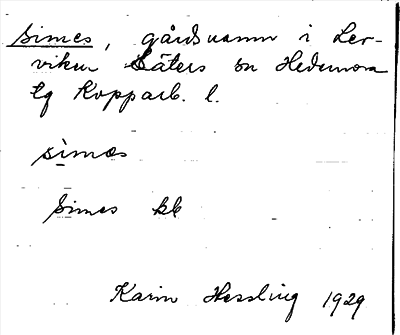 Simes, gårdsnamn i Ler-
viken Säters sn Hedemora
tg Kopparb. l.
simæs
Simes kb
Karin Hessling 1929